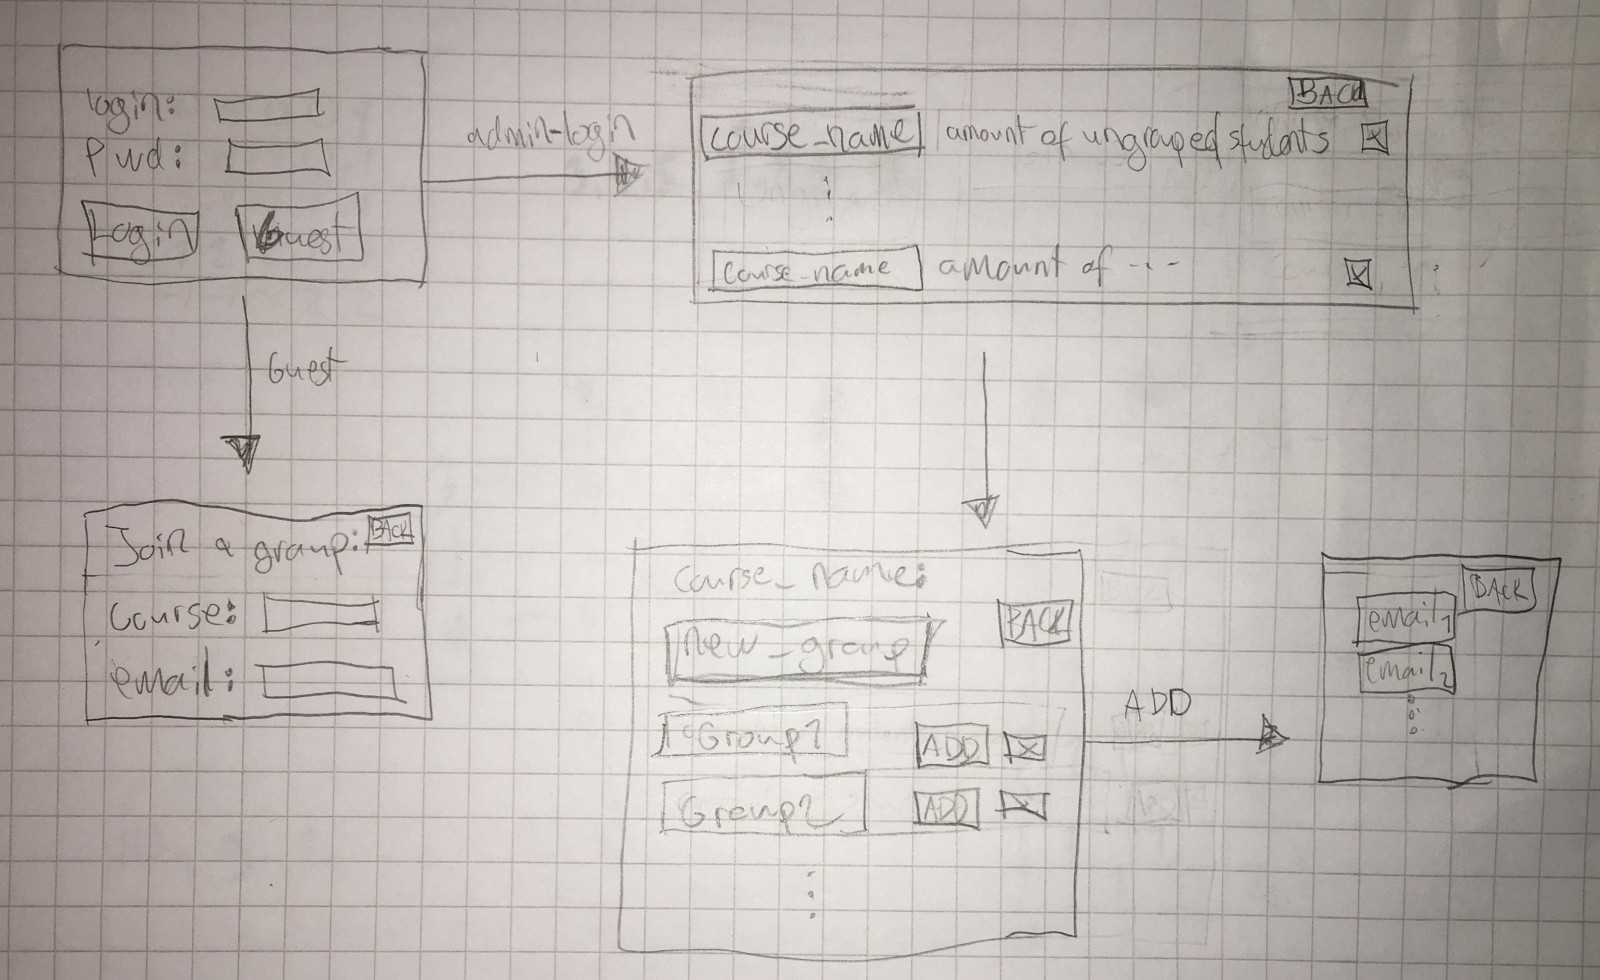 login:
Pwd:
Login Guest
admin-login
BACK
course_name amount of ungrouped students X
course_name amount of --- X
Guest
Join a group: BACK
course:
email:
course_name:
BACK
new_group
Group1 ADD X
Group2 ADD X
ADD
BACK
email1
email2